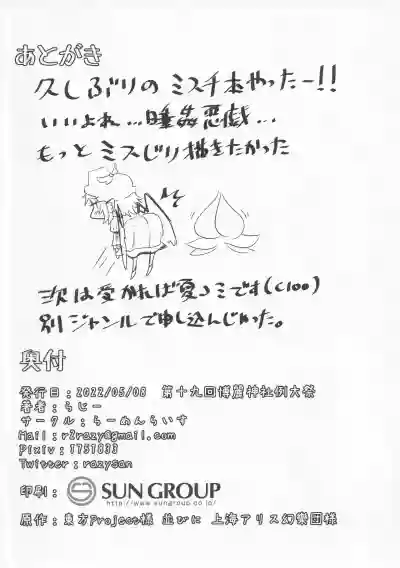 あとがき
久しぶりの ミスチ本やったー!!
いいよね…睡姦悪戯…
もっと ミスじり描きたかった
次は受かれば夏コミです(C100)
別ジャンルで申し込んじゃった。
奥付
発行日:2022/05/08 第十九回博麗神社例大祭
著者:らじー
サークル:らーめんらいす
Mail:r2razy@gmail.com
Pixiv:1751833
Twitter:razysan
印刷:SUN GROUP
http://www.sungroup.co.jp/
原作:東方Project様 並びに 上海アリス幻樂団様